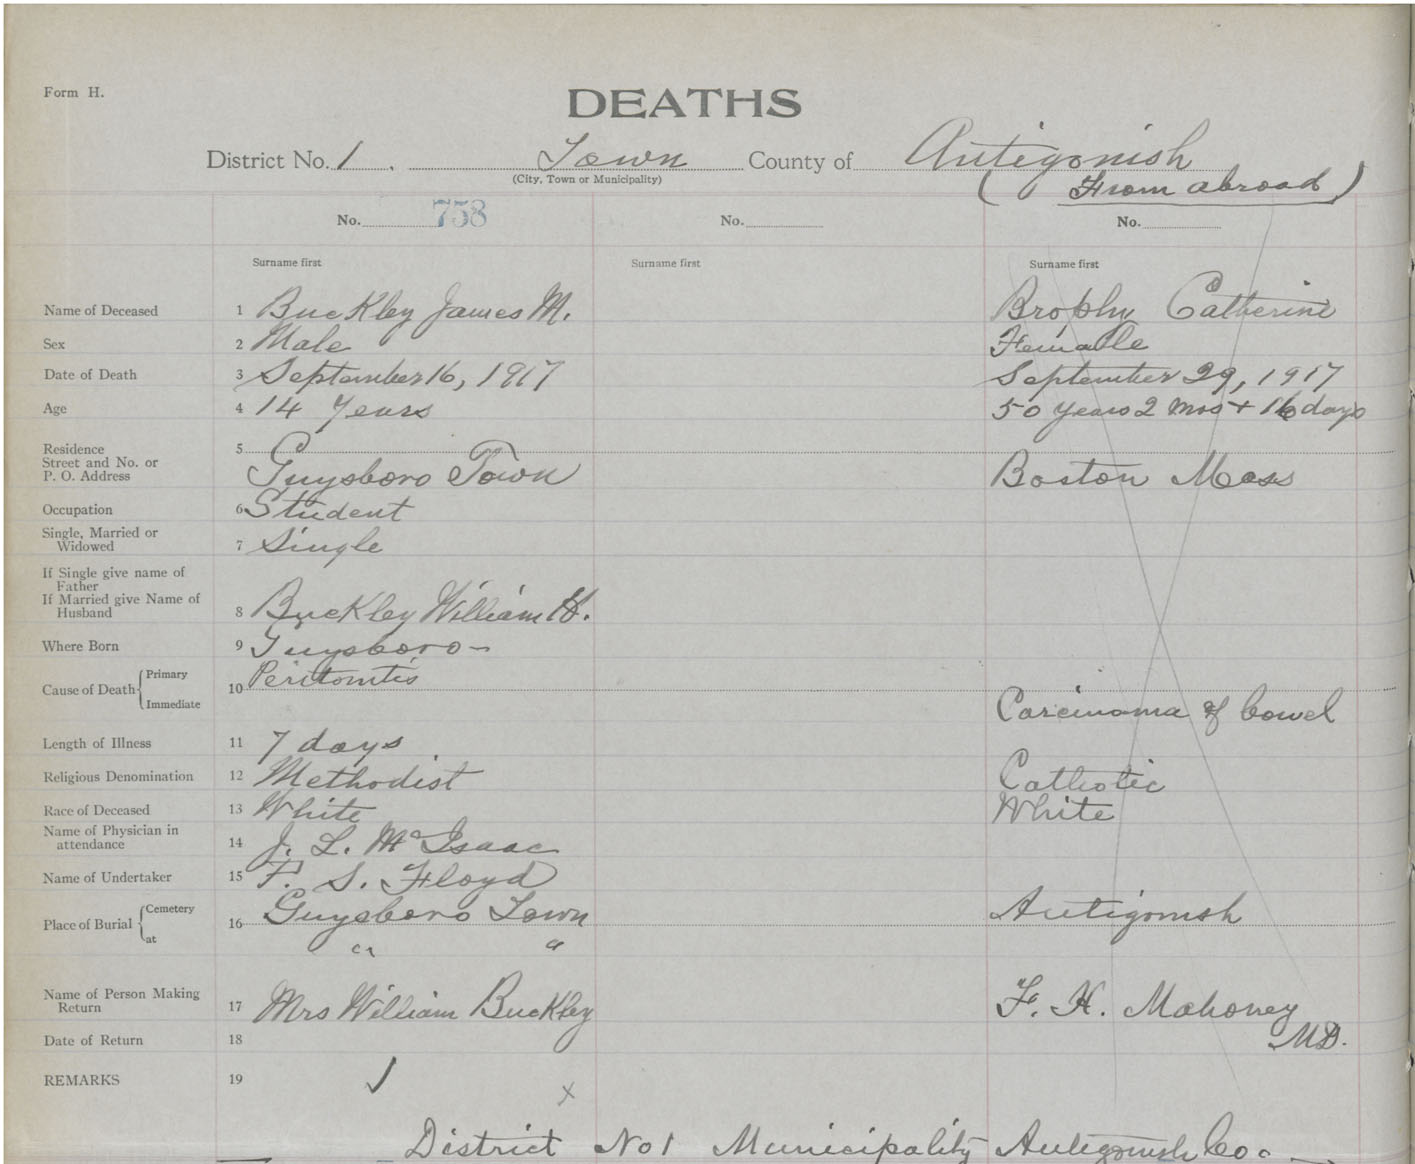 Form H.
DEATHS
District No. 1. Town County of Antigonish
(City, Town or Municipality)
(From abroad)
No. 758 No. No.
Surname first Surname first Surname first
Name of Deceased 1 Buckley James M. Brophy Catherine
Sex 2 Male Female
Date of Death 3 September 16, 1917 September 29, 1917
Age 4 14 Years 50 years 2 mos + 16 days
Residence
Street and No. or
P. O. Address 5 Guysboro Town Boston Mass
Occupation 6 Student
Single, Married or
Widowed 7 Single
If Single give name of
Father
If Married give Name of
Husband 8 Buckley William H.
Where Born 9 Guysboro -
Cause of Death { Primary 10 Peritontis
Immediate Carcinoma of bowel
Length of Illness 11 7 days
Religious Denomination 12 Methodist Catholic
Race of Deceased 13 White White
Name of Physician in
attendance 14 J. L. McIsaac
Name of Undertaker 15 F. S. Floyd
Place of Burial { Cemetery 16 Guysboro Town Antigonish
at " "
Name of Person Making
Return 17 Mrs William Buckley F. H. Mahoney
M.D.
Date of Return 18
REMARKS 19 ✓ x
District No 1 Municipality Antigonish Co.